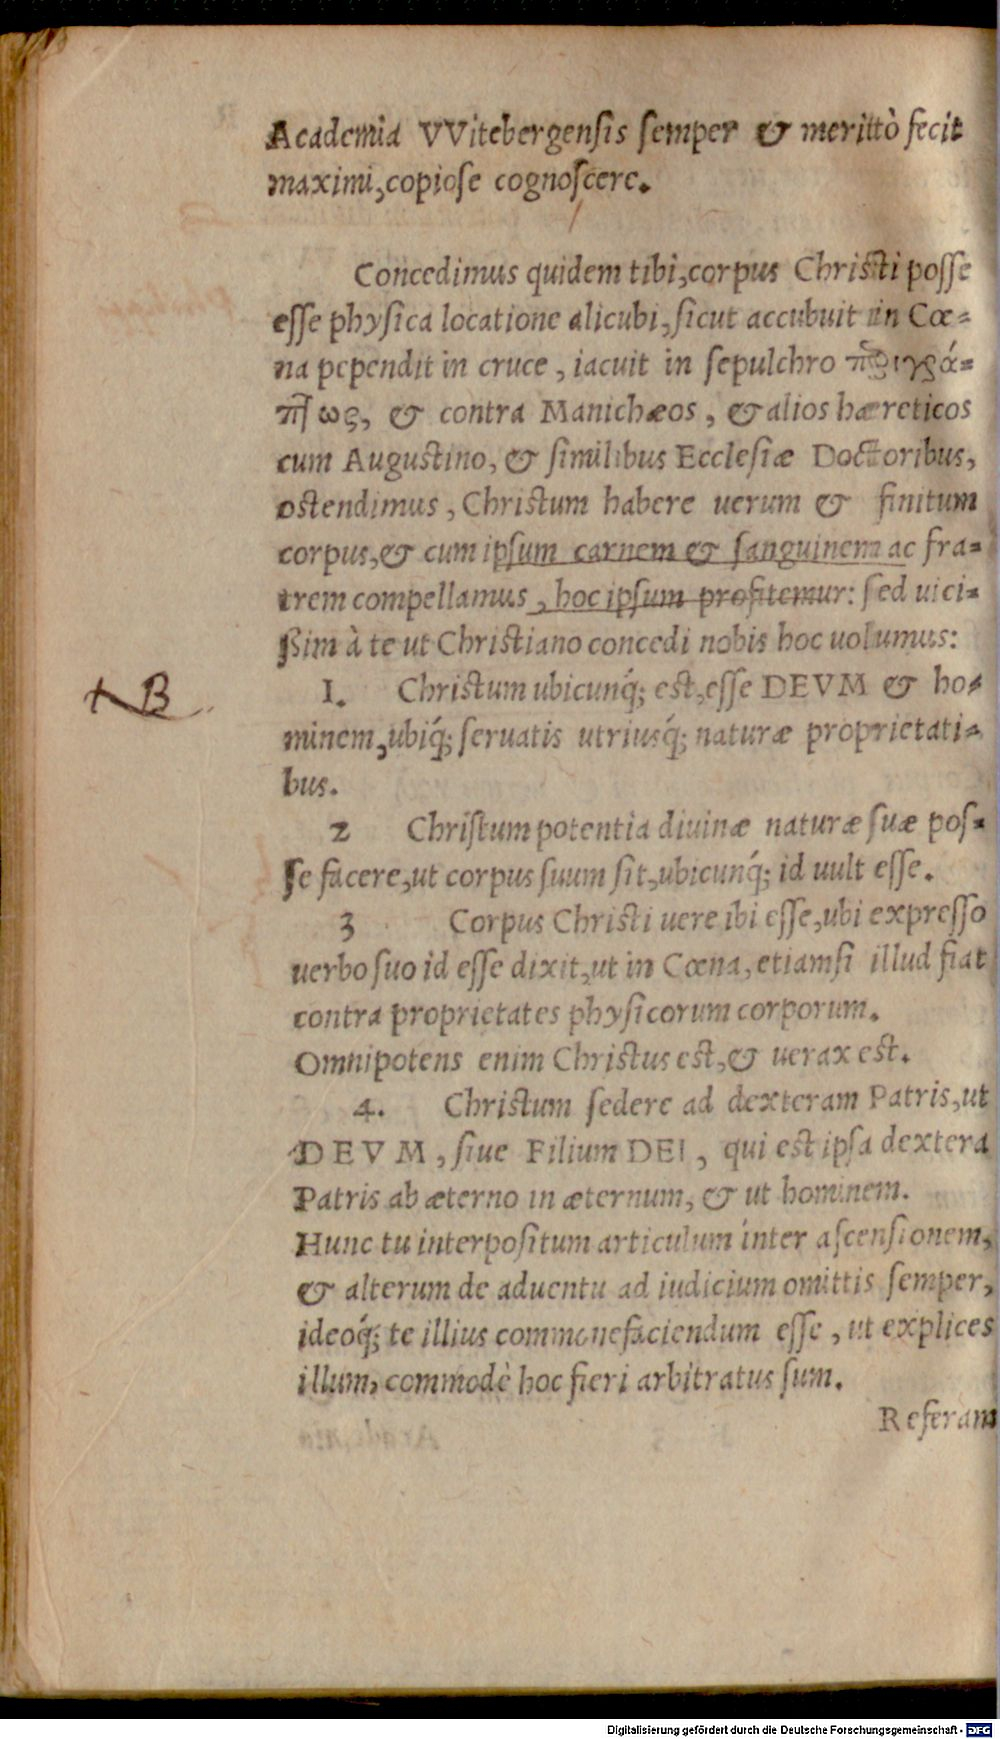 Academia VVitebergensis semper & merittò fecit
maximi, copiose cognoscere.
Concedimus quidem tibi, corpus Christi posse
esse physica locatione alicubi, sicut accubuit in Cœ-
na pependit in cruce, iacuit in sepulchro περιγρά-
πτως, & contra Manichæos, & alios hæreticos
cum Augustino, & similibus Ecclesiæ Doctoribus,
ostendimus, Christum habere uerum & finitum
corpus, & cum ipsum carnem & sanguinem ac fra-
trem compellamus, hoc ipsum profitemur: sed uici-
ßim à te ut Christiano concedi nobis hoc uolumus:
NB
1. Christum ubicunq́; est, esse DEVM & ho-
minem, ubiq́; seruatis utriusq́; naturæ proprietati-
bus.
2 Christum potentia diuinæ naturæ suæ pos-
se facere, ut corpus suum sit, ubicunq́; id uult esse.
3 Corpus Christi uere ibi esse, ubi expresso
uerbo suo id esse dixit, ut in Cœna, etiamsi illud fiat
contra proprietates physicorum corporum.
Omnipotens enim Christus est, & uerax est.
4. Christum sedere ad dexteram Patris, ut
DEVM, siue Filium DEI, qui est ipsa dextera
Patris ab æterno in æternum, & ut hominem.
Hunc tu interpositum articulum inter ascensionem,
& alterum de aduentu ad iudicium omittis semper,
ideoq́; te illius commonefaciendum esse, ut explices
illum, commodè hoc fieri arbitratus sum.
Referam
Digitalisierung gefördert durch die Deutsche Forschungsgemeinschaft - DFG